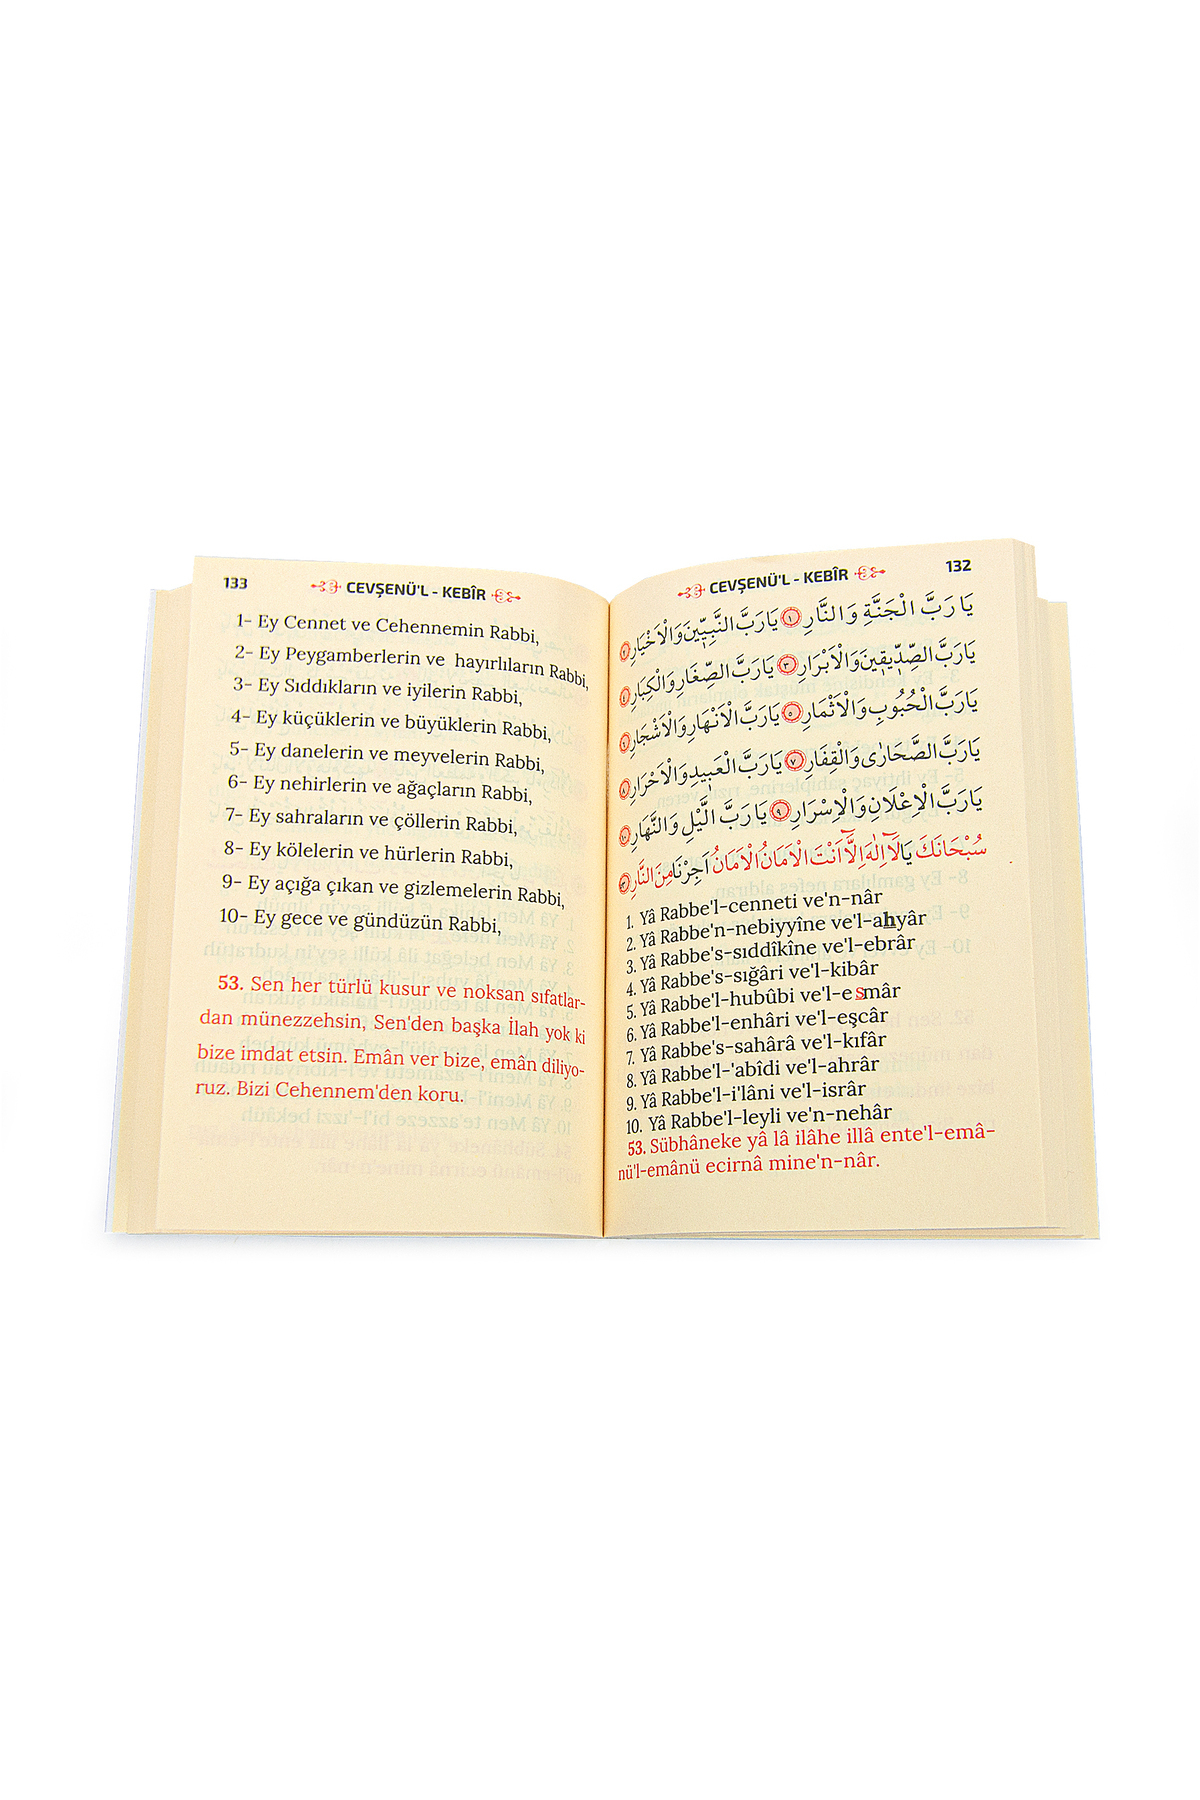 133 CEVŞENÜ'L - KEBÎR
1- Ey Cennet ve Cehennemin Rabbi,
2- Ey Peygamberlerin ve hayırlıların Rabbi,
3- Ey Sıddıkların ve iyilerin Rabbi,
4- Ey küçüklerin ve büyüklerin Rabbi,
5- Ey danelerin ve meyvelerin Rabbi,
6- Ey nehirlerin ve ağaçların Rabbi,
7- Ey sahraların ve çöllerin Rabbi,
8- Ey kölelerin ve hürlerin Rabbi,
9- Ey açığa çıkan ve gizlemelerin Rabbi,
10- Ey gece ve gündüzün Rabbi,
53. Sen her türlü kusur ve noksan sıfatlar-
dan münezzehsin, Sen'den başka İlah yok ki
bize imdat etsin. Emân ver bize, emân diliyo-
ruz. Bizi Cehennem'den koru.
CEVŞENÜ'L - KEBÎR 132
يَا رَبَّ الْجَنَّةِ وَالنَّارِ ١ يَارَبَّ النَّبِيّٖينَ وَالْاَخْيَارِ ٢
يَارَبَّ الصِّدّٖيقٖينَ وَالْاَبْرَارِ ٣ يَارَبَّ الصِّغَارِ وَالْكِبَارِ ٤
يَارَبَّ الْحُبُوبِ وَالْاَثْمَارِ ٥ يَارَبَّ الْاَنْهَارِ وَالْاَشْجَارِ ٦
يَارَبَّ الصَّحَارٰى وَالْقِفَارِ ٧ يَارَبَّ الْعَبٖيدِ وَالْاَحْرَارِ ٨
يَارَبَّ الْاِعْلَانِ وَالْاِسْرَارِ ٩ يَا رَبَّ الَّيْلِ وَالنَّهَارِ ١٠
سُبْحَانَكَ يَا لَٓا اِلٰهَ اِلَّٓا اَنْتَ الْاَمَانُ الْاَمَانُ اَجِرْنَا مِنَ النَّارِ
1. Yâ Rabbe'l-cenneti ve'n-nâr
2. Yâ Rabbe'n-nebiyyîne ve'l-ahyâr
3. Yâ Rabbe's-sıddîkîne ve'l-ebrâr
4. Yâ Rabbe's-sığâri ve'l-kibâr
5. Yâ Rabbe'l-hubûbi ve'l-esmâr
6. Yâ Rabbe'l-enhâri ve'l-eşcâr
7. Yâ Rabbe's-sahârâ ve'l-kıfâr
8. Yâ Rabbe'l-'abîdi ve'l-ahrâr
9. Yâ Rabbe'l-i'lâni ve'l-isrâr
10. Yâ Rabbe'l-leyli ve'n-nehâr
53. Sübhâneke yâ lâ ilâhe illâ ente'l-emâ-
nü'l-emânü ecirnâ mine'n-nâr.